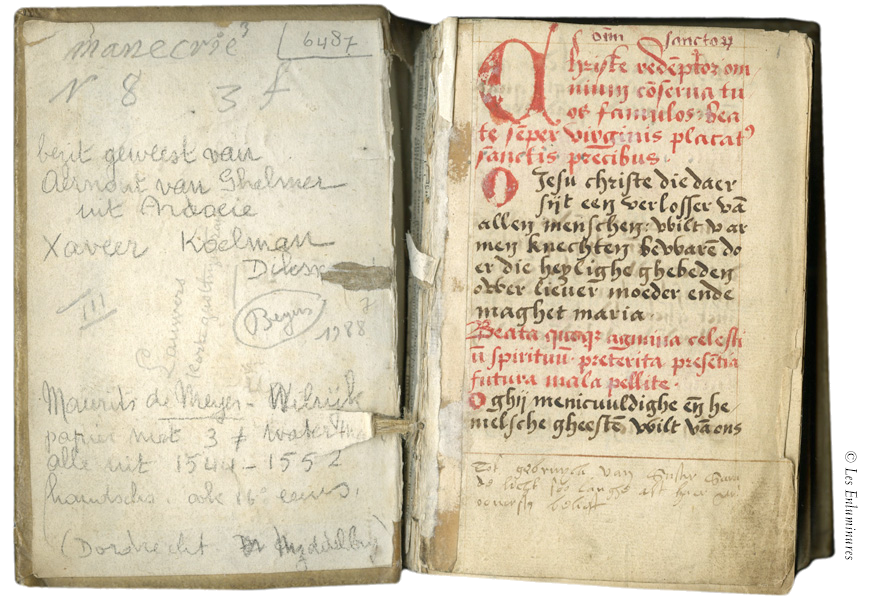 manecrie 3 6487
N 8 3 f
bezit geweest van
Aernout van Ghelmer
uit
Xaveer Koelman
III
Lauwers
Beyers
1988
Maurits de Meyer - Wilrijk
papier met 3 ≠ water
alle uit 1544 - 1552
handschr. ook 16e eeuws.
(Dordrecht
oim̄ sanctorꝝ
Christe redēptor om
nium cōserua tu
os famulos: bea
te sēper virginis placatꝰ
sanctis precibus.
O Jesu christe die daer
sijt een verlosser vā
allen menschen: wilt v ar
men knechten bewarē do
er die heylighe ghebeden
ower lieuer moeder ende
maghet maria
Beata quoqꝫ agmina celesti
ū spirituū preterita presentia
futura mala pellite.
O ghij menicuuldighe eñ he
melsche gheestē wilt vā ons
Tot gebruyck van Suster
© Les Enluminures